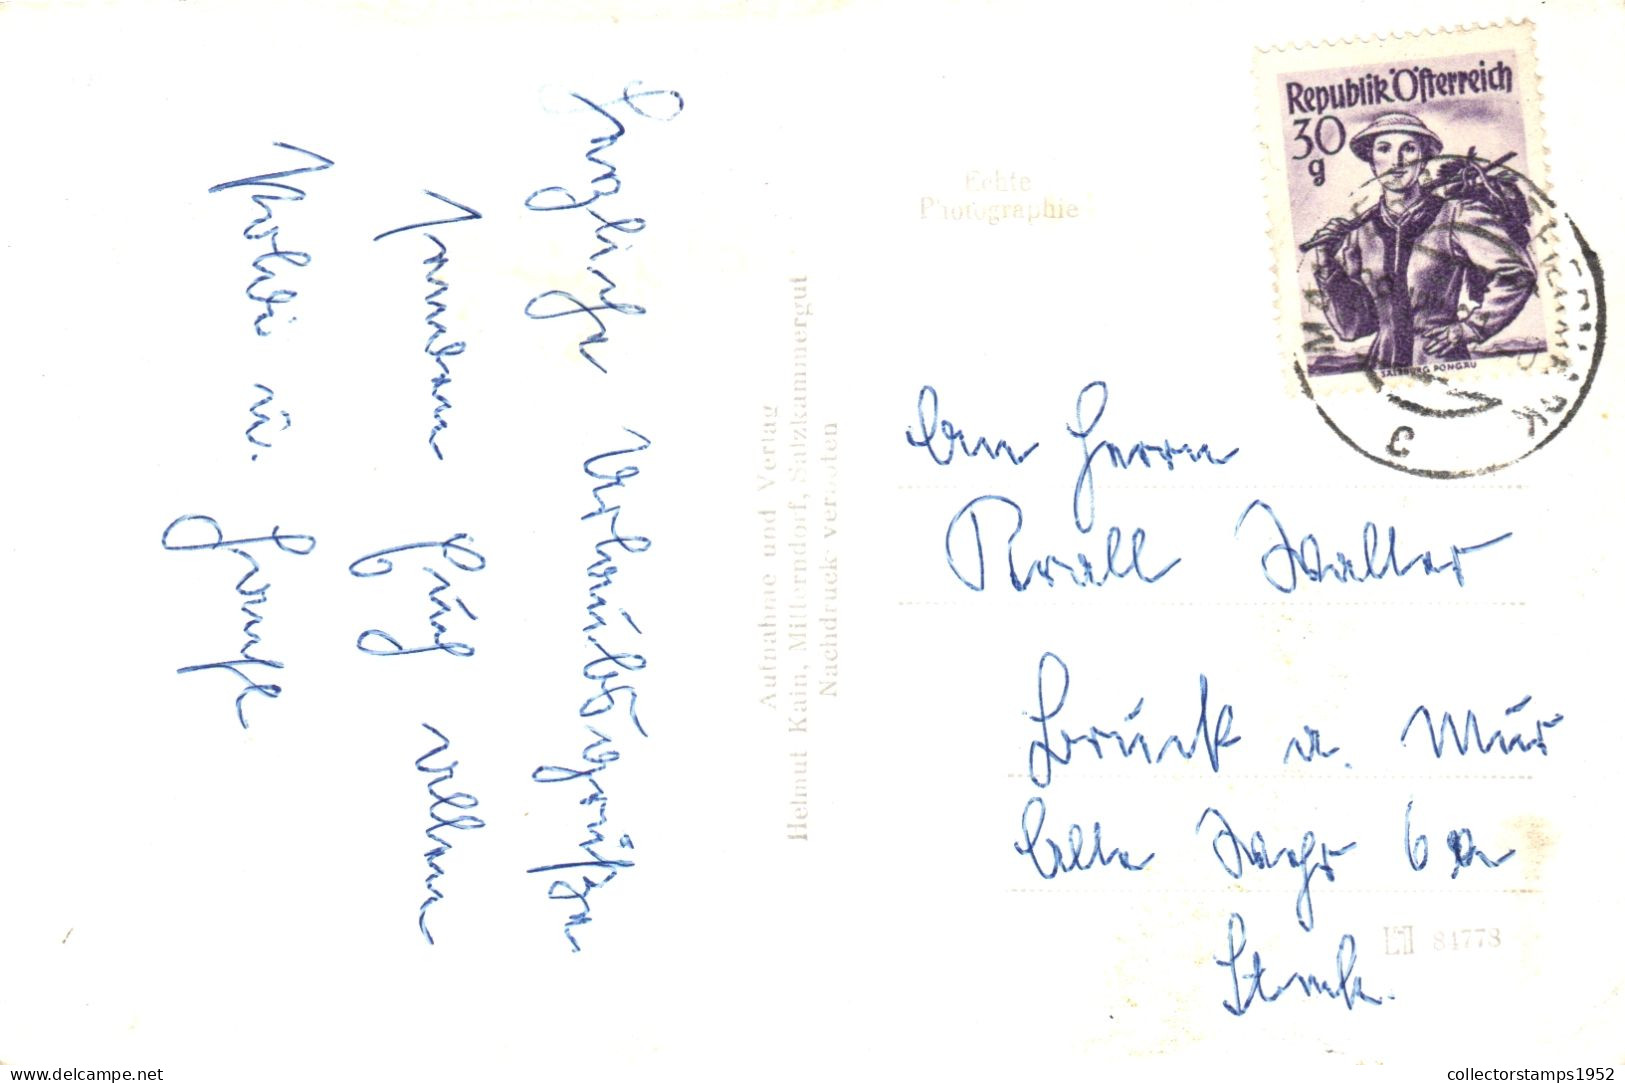 Herzliche Urlaubsgrüße
senden Euch allen
u.
Echte
Photographie
Aufnahme und Verlag
Helmut Kain, Mitterndorf, Salzkammergut
Nachdruck verboten
Republik Österreich
30
g
SALZBURG PONGAU
An Herrn
Walter
Bruck a. Mur
6
Stmk.
84778
delcampe.net
collectorstamps1952